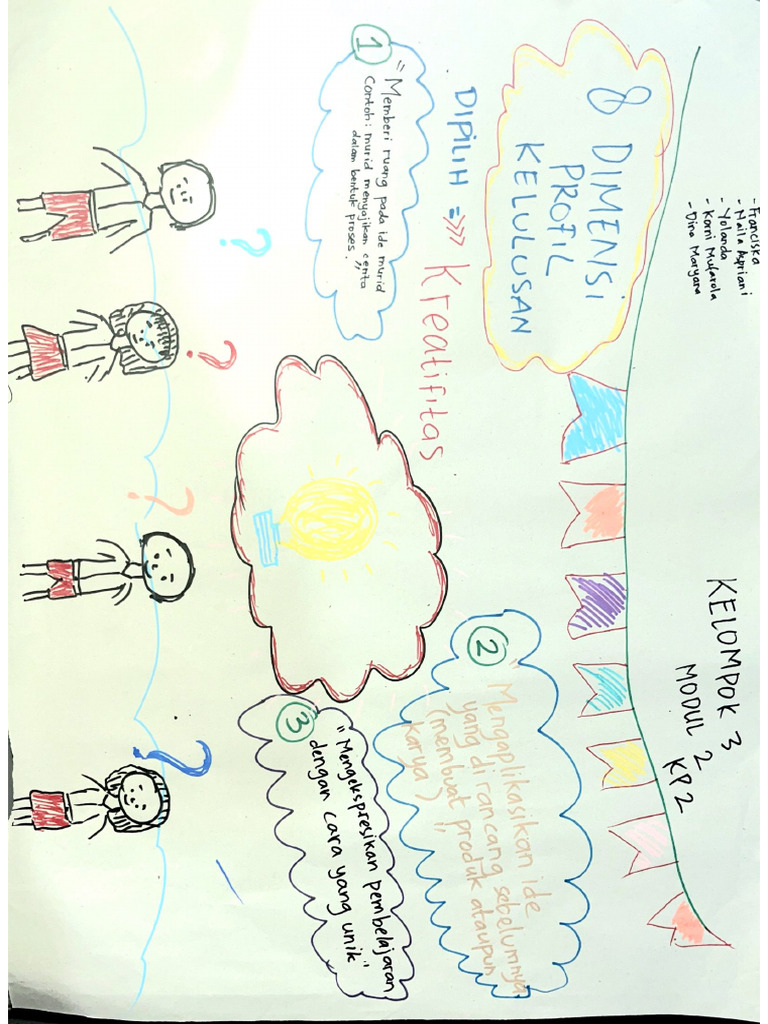 - Franciska
- Naila Apriani
- Yolanda
- Karni Mufarola
- Dina Maryana
KELOMPOK 3
MODUL 2
KP2
8 DIMENSI
PROFIL
KELULUSAN
DIPILIH =>>> Kreatifitas
1
"Memberi ruang pada ide murid
Contoh: murid menyajikan cerita
dalam bentuk proses."
2
"Mengaplikasikan ide
yang dirancang sebelumnya
(membuat produk ataupun
karya)"
3
"Mengekspresikan pembelajaran
dengan cara yang unik"
?
?
?
?